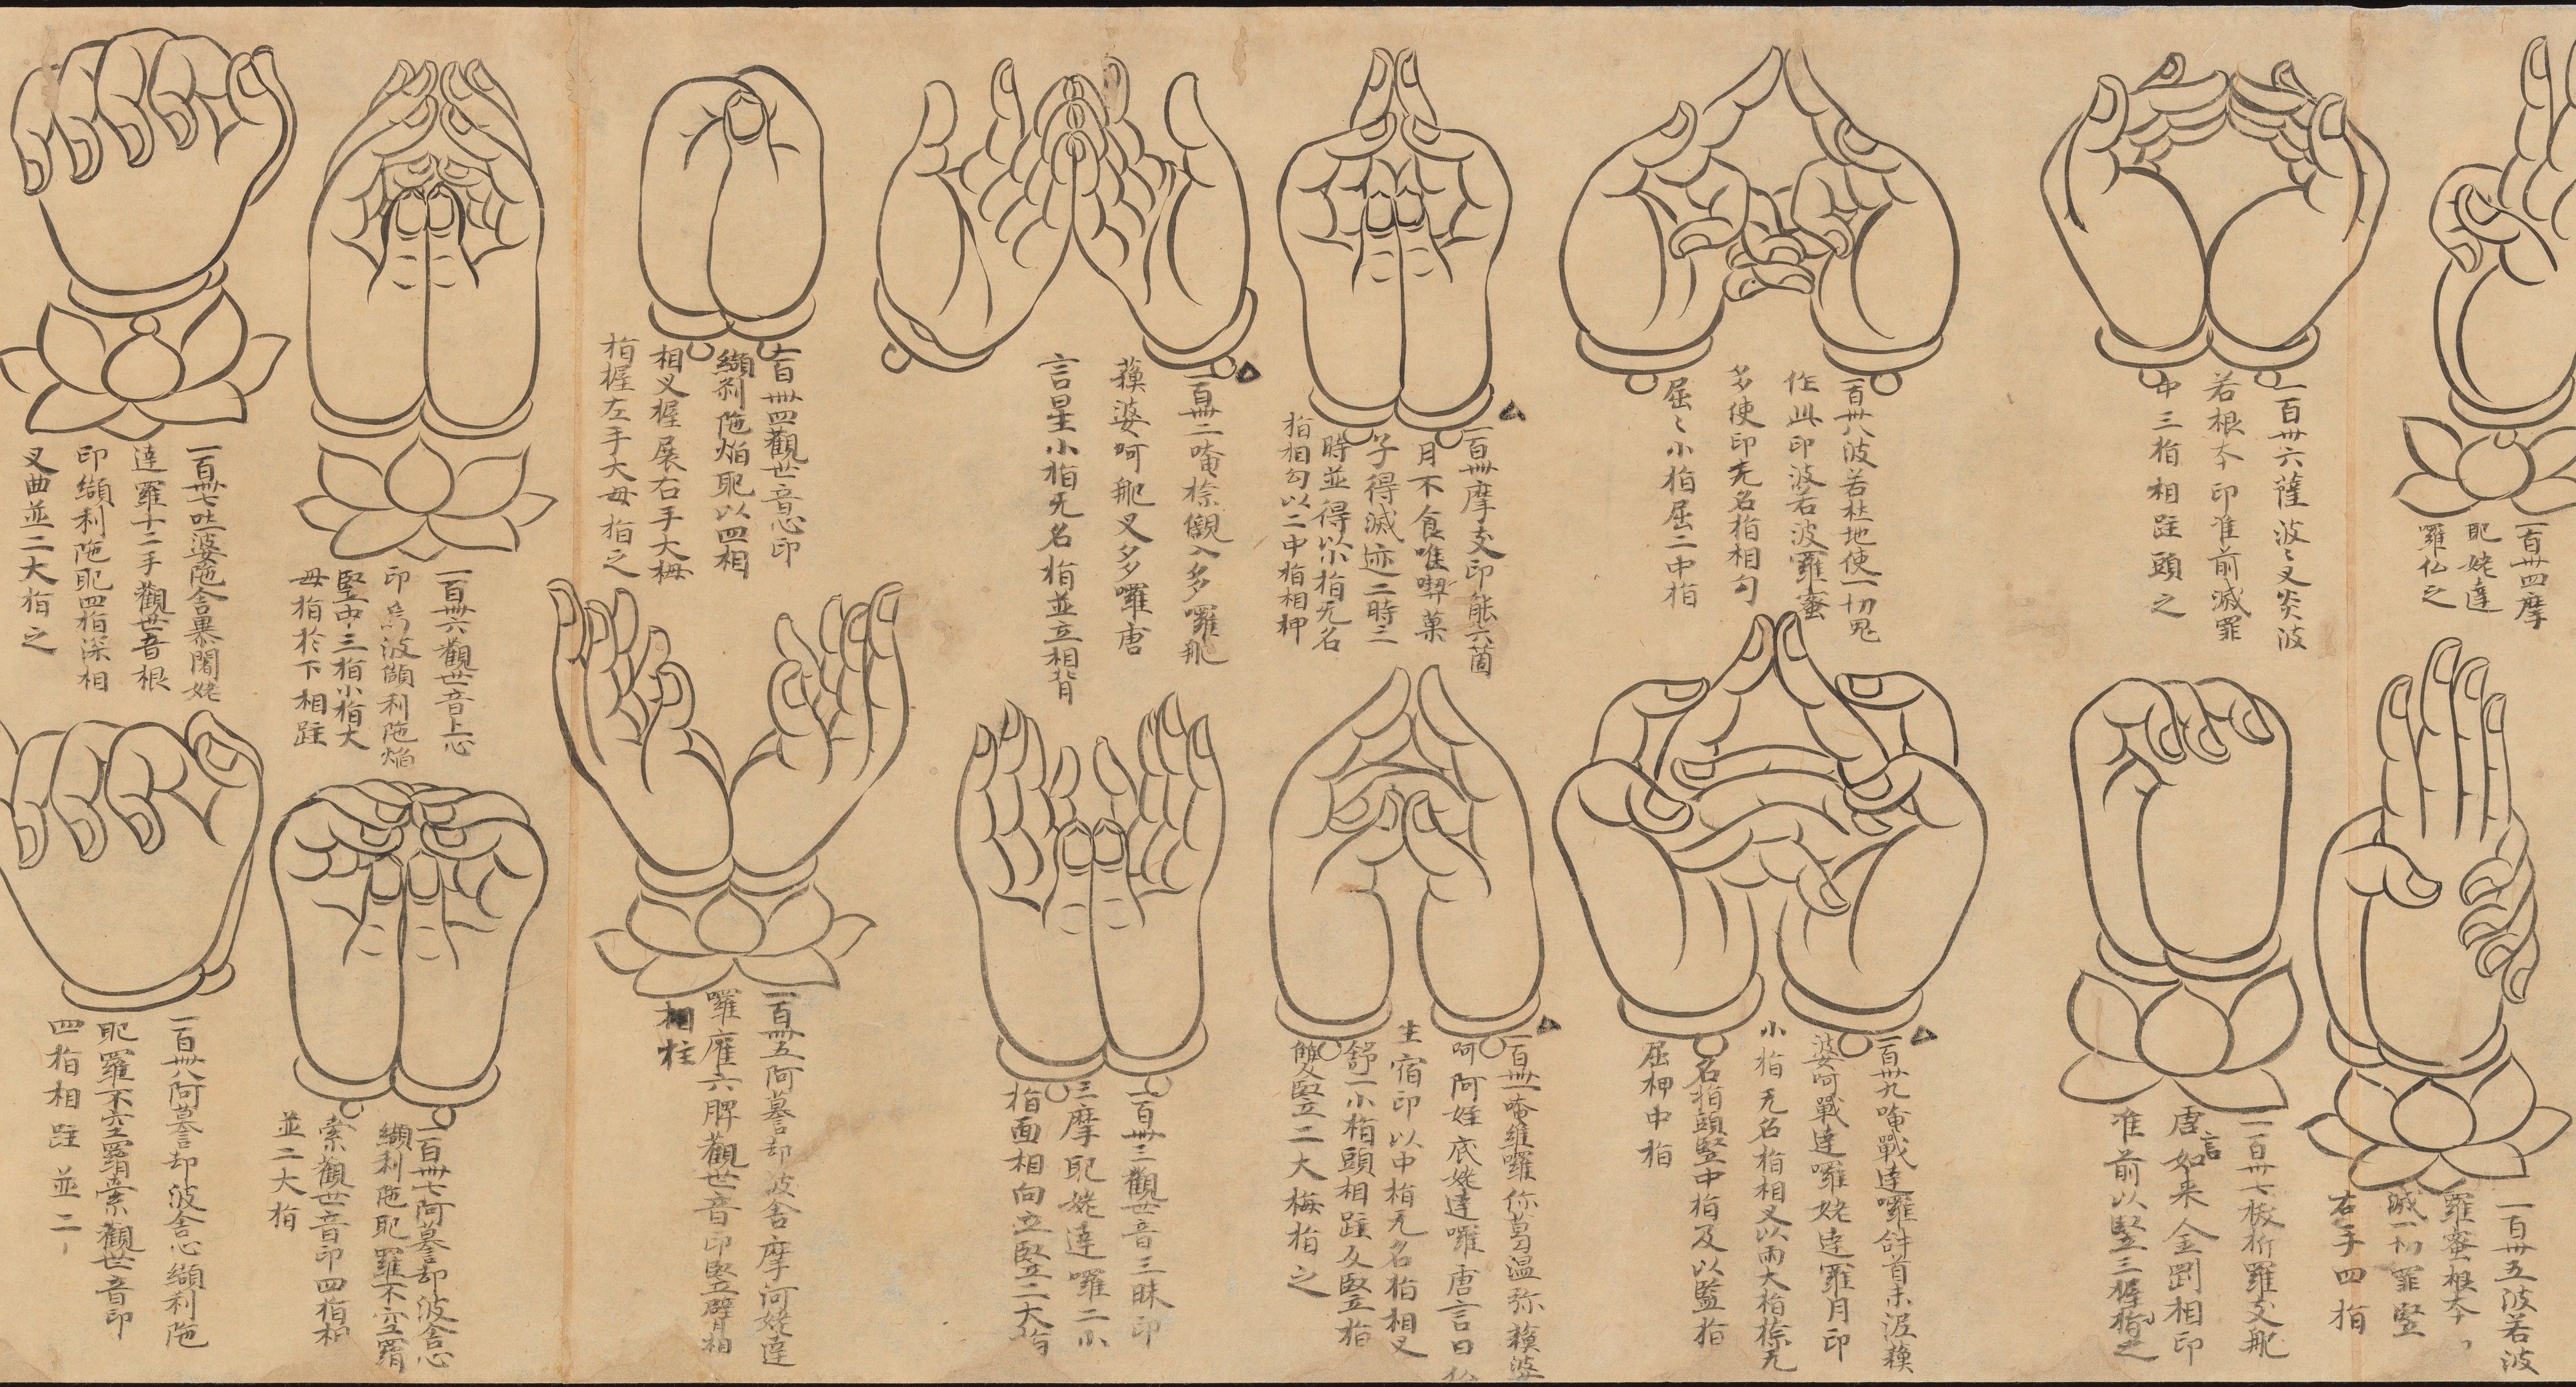 一百卅四摩
耶姥達
羅仏之
一百卅五波若波
羅蜜根本
滅一切罪竪
右手四指
一百卅六薩波々叉炎波
若根本印准前滅罪
中三指相跓頭之
一百卅七板析羅支舭
唐言如来金罰相印
准前以竪三握指之
一百卅八波若杜地使一切鬼
作此印波若波羅蜜
多使印无名指相勾
屈々小指屈二中指
一百卅九唵戰達囉䛊首未泥蘓
婆呵戰達羅姥達羅月印
小指无名指相叉以兩大指捺无
名指頭竪中指及以監指
屈柙中指
一百卌摩支印能六箇
月不食唯喫菓
子得滅迹二時三
時並得以小指无名
指相勾以二中指相柙
一百卌一唵維囉你葛温弥蘓婆
呵阿娃底姥達囉唐言日
生宿印以中指无名指相叉
舒一小指頭相跓及竪指
雙竪二大梅指之
一百卌二唵捺儭入多囉舭
蘓婆呵舭叉多囉唐
言星小指无名指並立相背
一百卌三觀世音三昧印
三摩耶姥達囉二小
指面相向立竪二大指
一百卌四觀世音心印
纈利陁焰耶以四相
相叉握展右手大拇
指握左手大毋指之
一百卌五阿暮却波舍摩訶姥達
囉麾六臂觀世音印竪立臂相
相柱
一百卌六觀世音上心
印烏波纈利陁焰
竪中三指小指大
毋指於下相跓
一百卌七阿暮却波舍心
纈利陁耶羅不空羂
索觀世音印四指相
並二大指
一百卌七吐婆陁舍慕闍姥
達羅十二手觀世音根
印纈利陁耶四指深相
叉曲並二大指之
一百卌八阿暮却波舍心纈利陁
耶羅不空羂索觀世音印
四指相跓並二